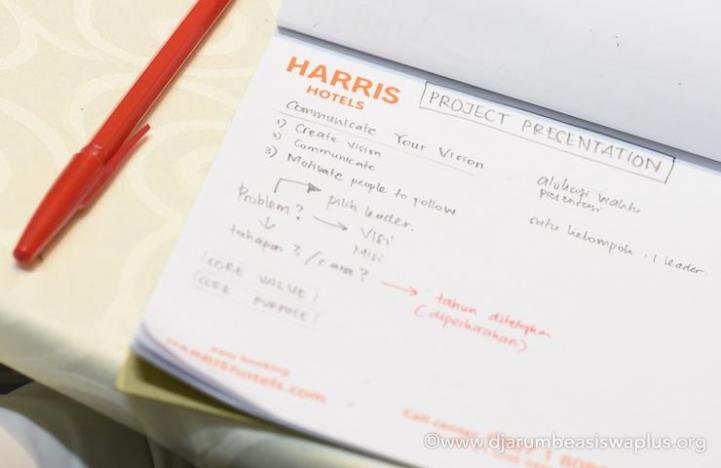 HARRIS
HOTELS
PROJECT PRESENTATION
Communicate Your Vision
1) Create Vision
2) Communicate
3) Motivate people to follow
alokasi waktu
presentasi
Problem? → pilih leader.
→ Visi
Misi
satu kelompok : 1 leader
↓
tahapan ? / cara ? → tahun ditetapkan
(diperkirakan)
CORE VALUE
CORE PURPOSE
easy booking
HARRIShotels.com
Call center
©www.djarumbeasiswaplus.org